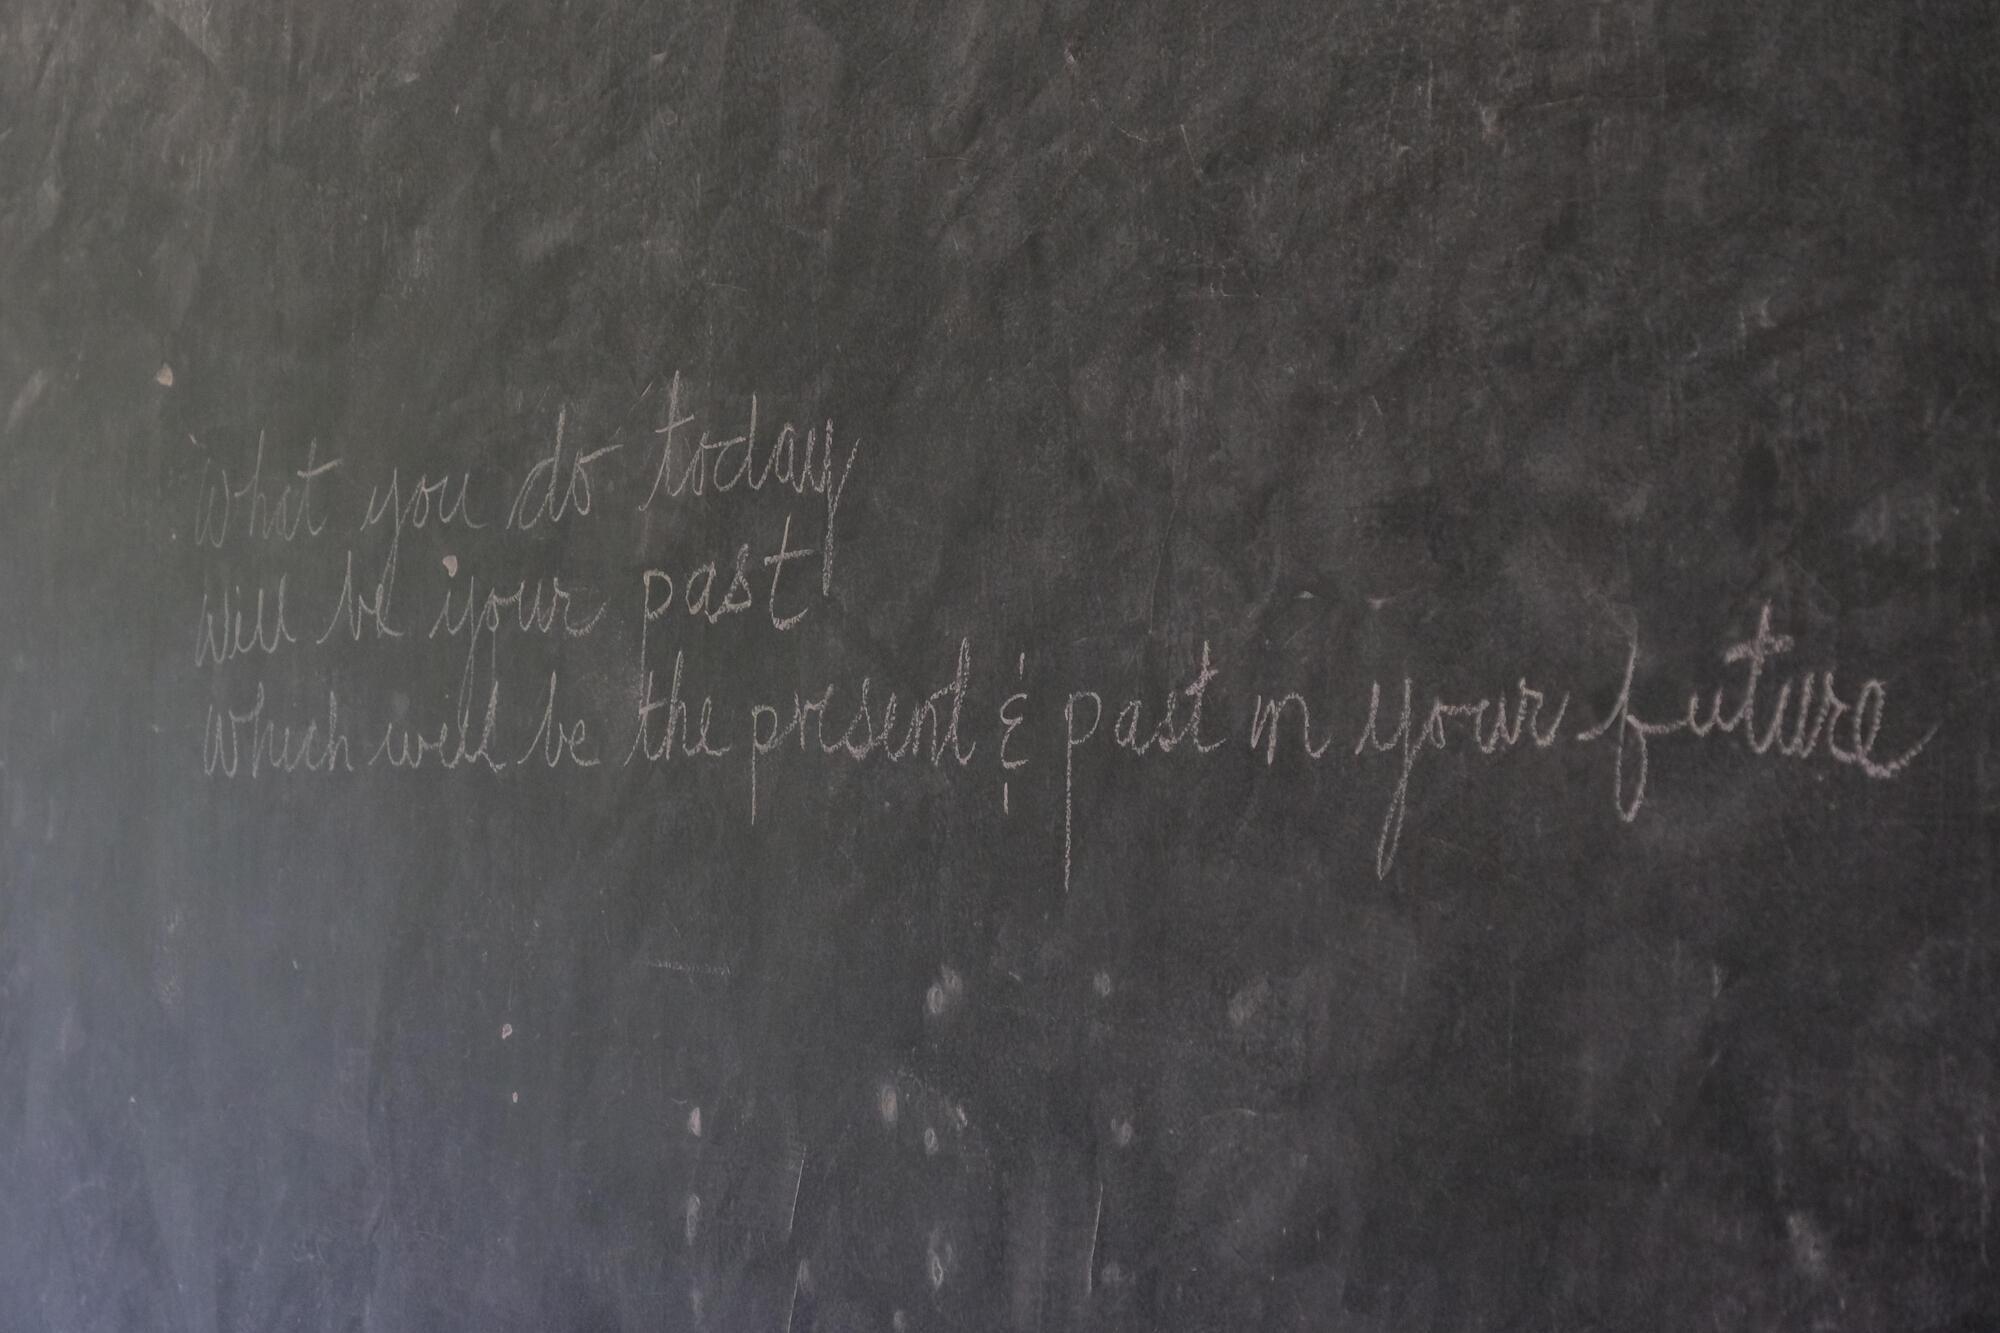 What you do today
will be your past
Which will be the present & past in your future